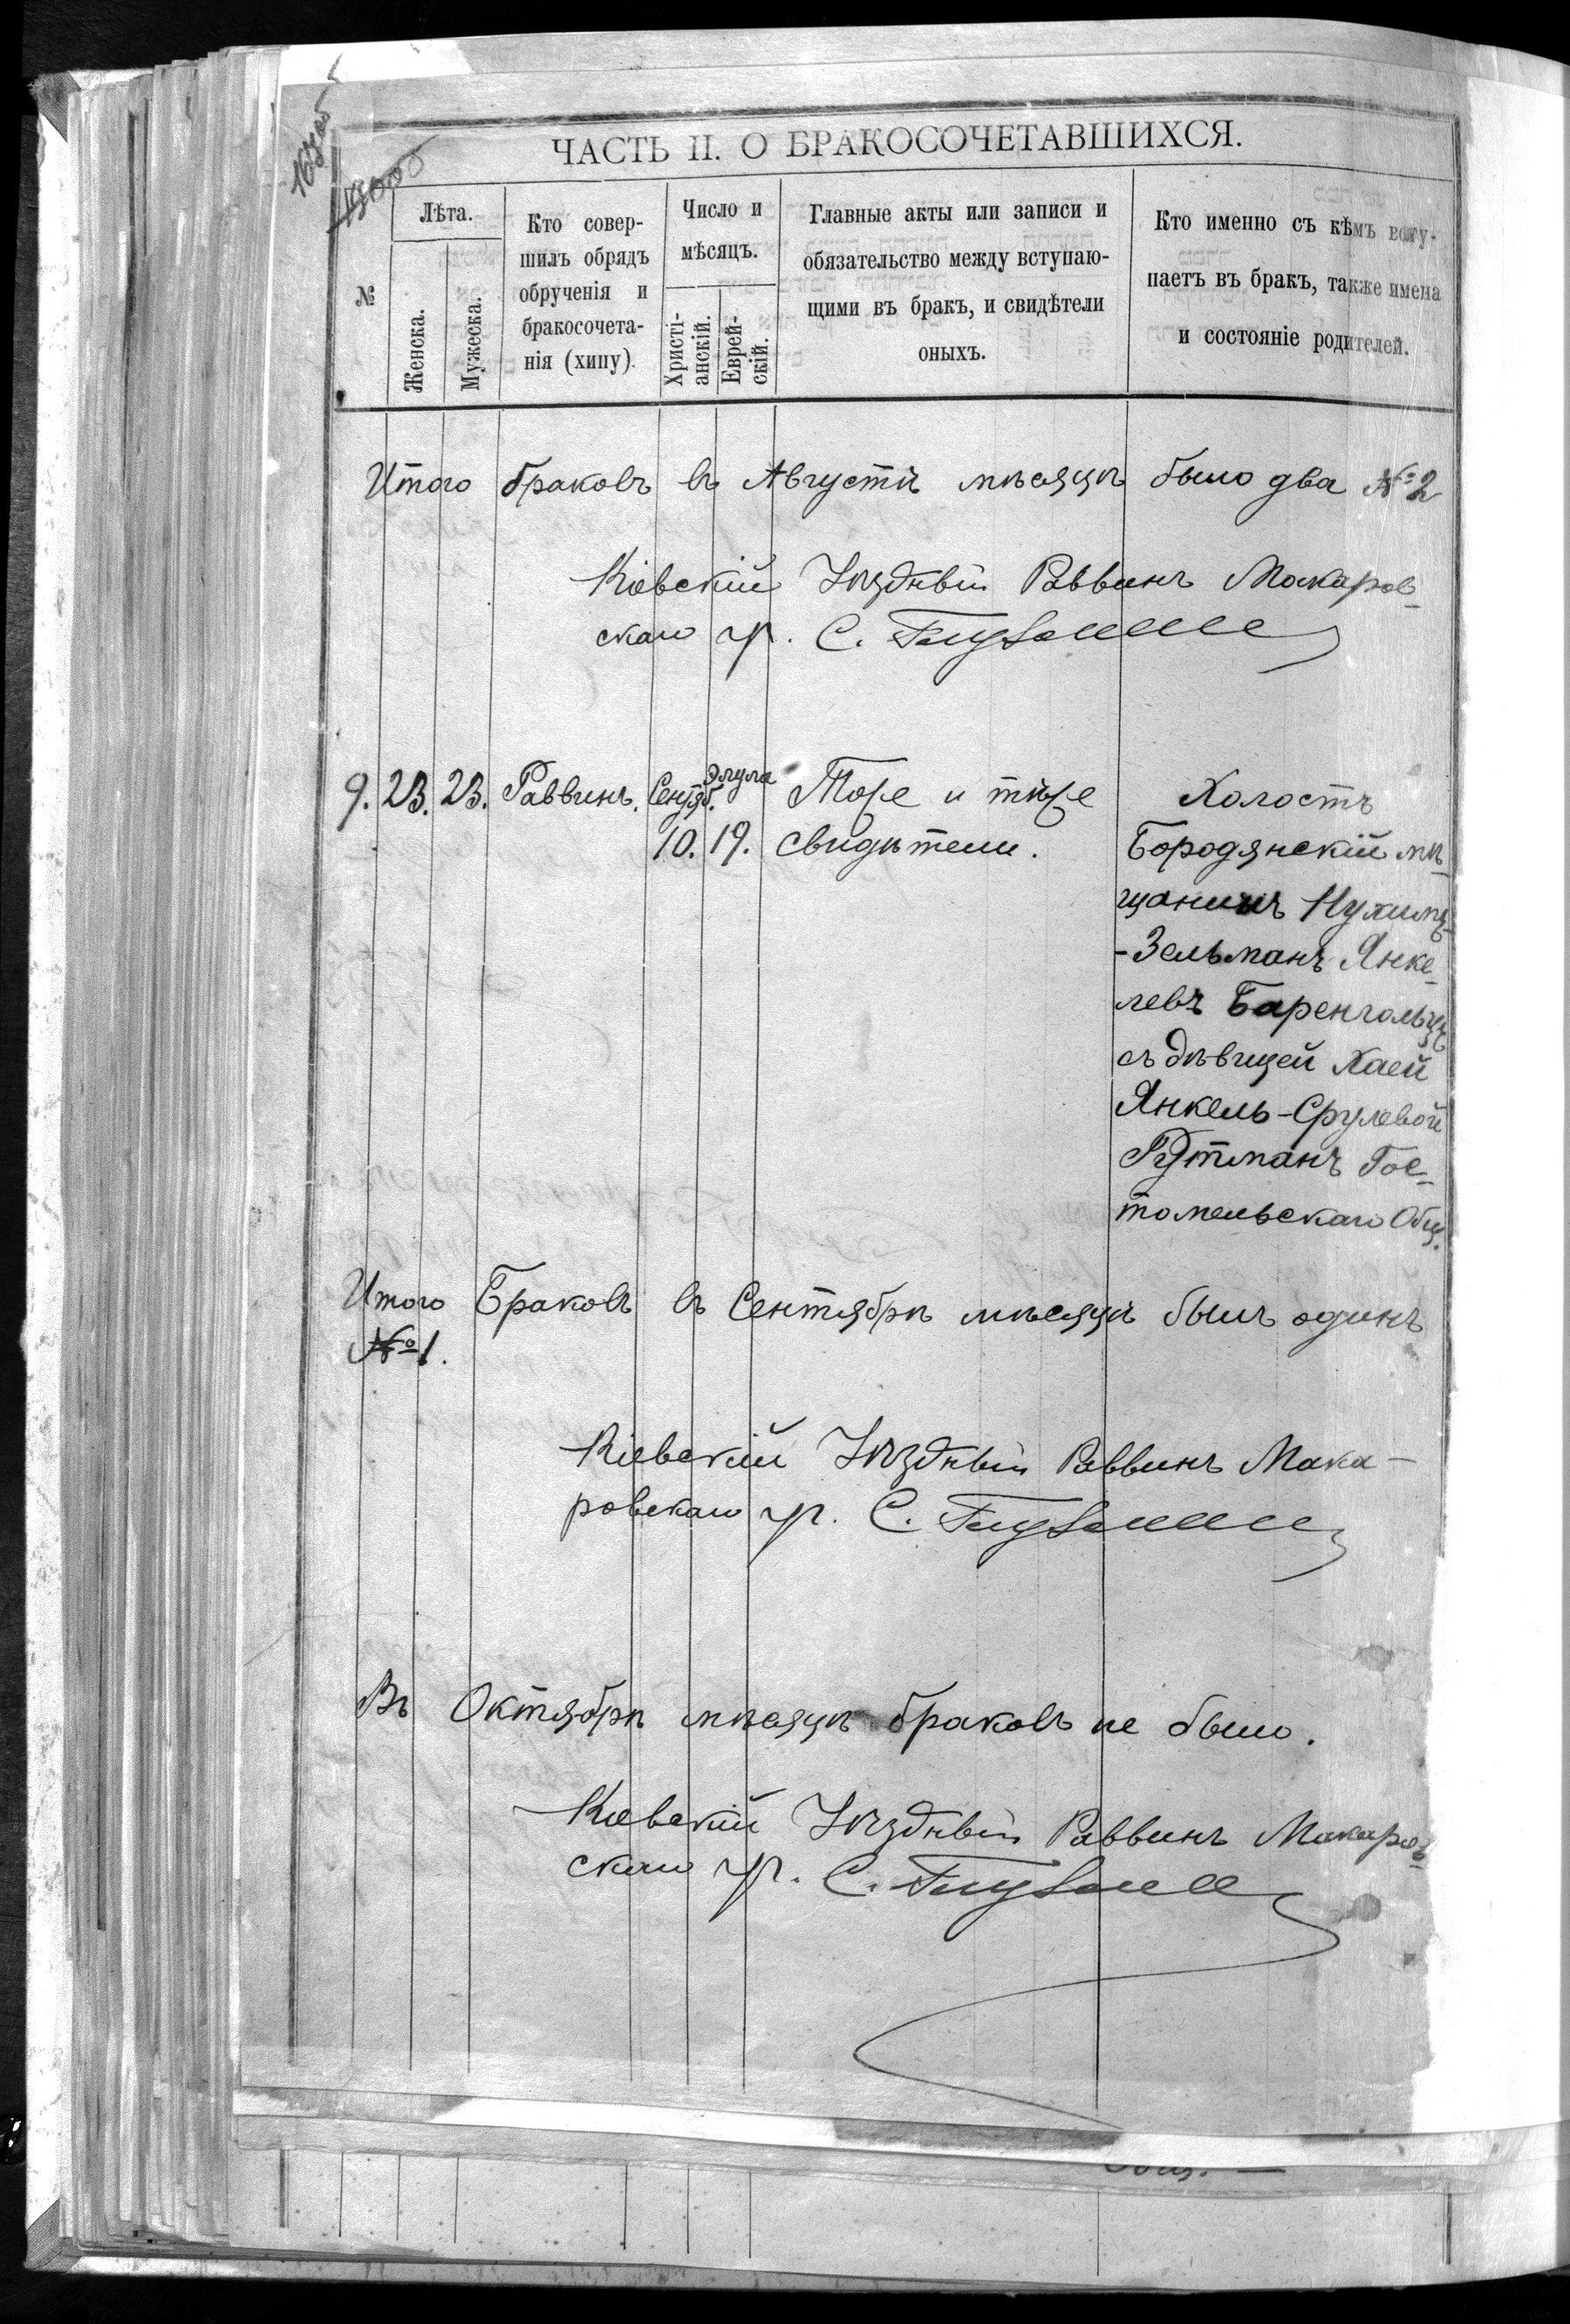 ЧАСТЬ II. О БРАКОСОЧЕТАВШИХСЯ.
№
Лѣта.
Женска.
Мужеска.
Кто совер-
шилъ обрядъ
обрученія и
бракосочета-
нія (хипу).
Число и
мѣсяцъ.
Христі-
анскій.
Еврей-
скій.
Главные акты или записи и
обязательство между вступаю-
щими въ бракъ, и свидѣтели
оныхъ.
Кто именно съ кѣмъ всту-
паетъ въ бракъ, также имена
и состояніе родителей.
Итого браковъ въ Августѣ мѣсяцѣ было два № 2
Кіевскій Уѣздный Раввинъ Макаров-
скаго уч. С.
9. 23. 23. Раввинъ. Сентяб. Элула Тоже и тѣже Холостъ
10. 19. свидѣтели. Бородянскій мѣ-
щанинъ Нухимъ-
-Зельманъ Янке-
левъ Баренгольцъ
съ дѣвицей Хаей
Янкель-Срулевой
Рутманъ Гос-
томельскаго Общ.
Итого Браковъ въ Сентябрѣ мѣсяцѣ былъ одинъ
№ 1.
Кіевскій Уѣздный Раввинъ Мака-
ровскаго уч. С.
Въ Октябрѣ мѣсяцѣ браковъ не было.
Кіевскій Уѣздный Раввинъ Макаров-
скаго уч. С.